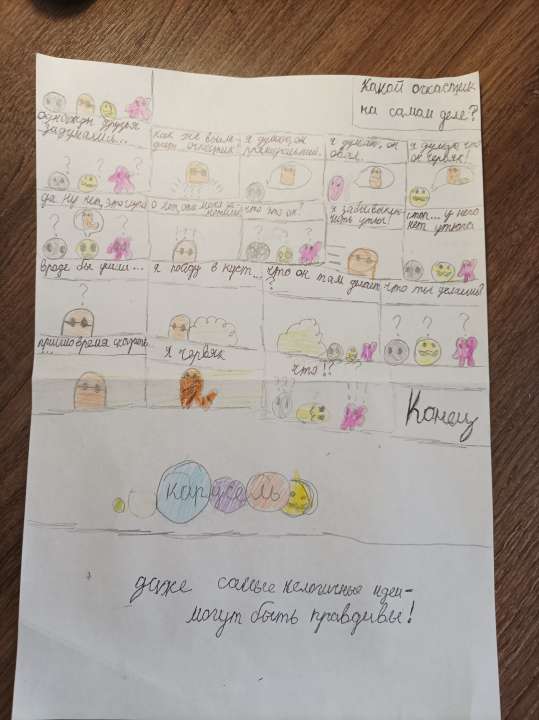 Какой очкастик
на самом деле?
однажды друзья
задумались...
как же выгля-
дит очкастик?
я думаю, он
я думаю, он
овал.
я думаю, что
он червяк!
да ну нет, это
о нет, это
что это он?
я забыл выклю-
чить утюг!
стоп... у него
нет утюга
вроде бы ушли...
я пойду в куст...
что он там делает
?
что ты делаешь?
пришло время сказать
...
я червяк
что!?
Конец
карусель
даже самые нелогичные идеи-
могут быть правдивы!